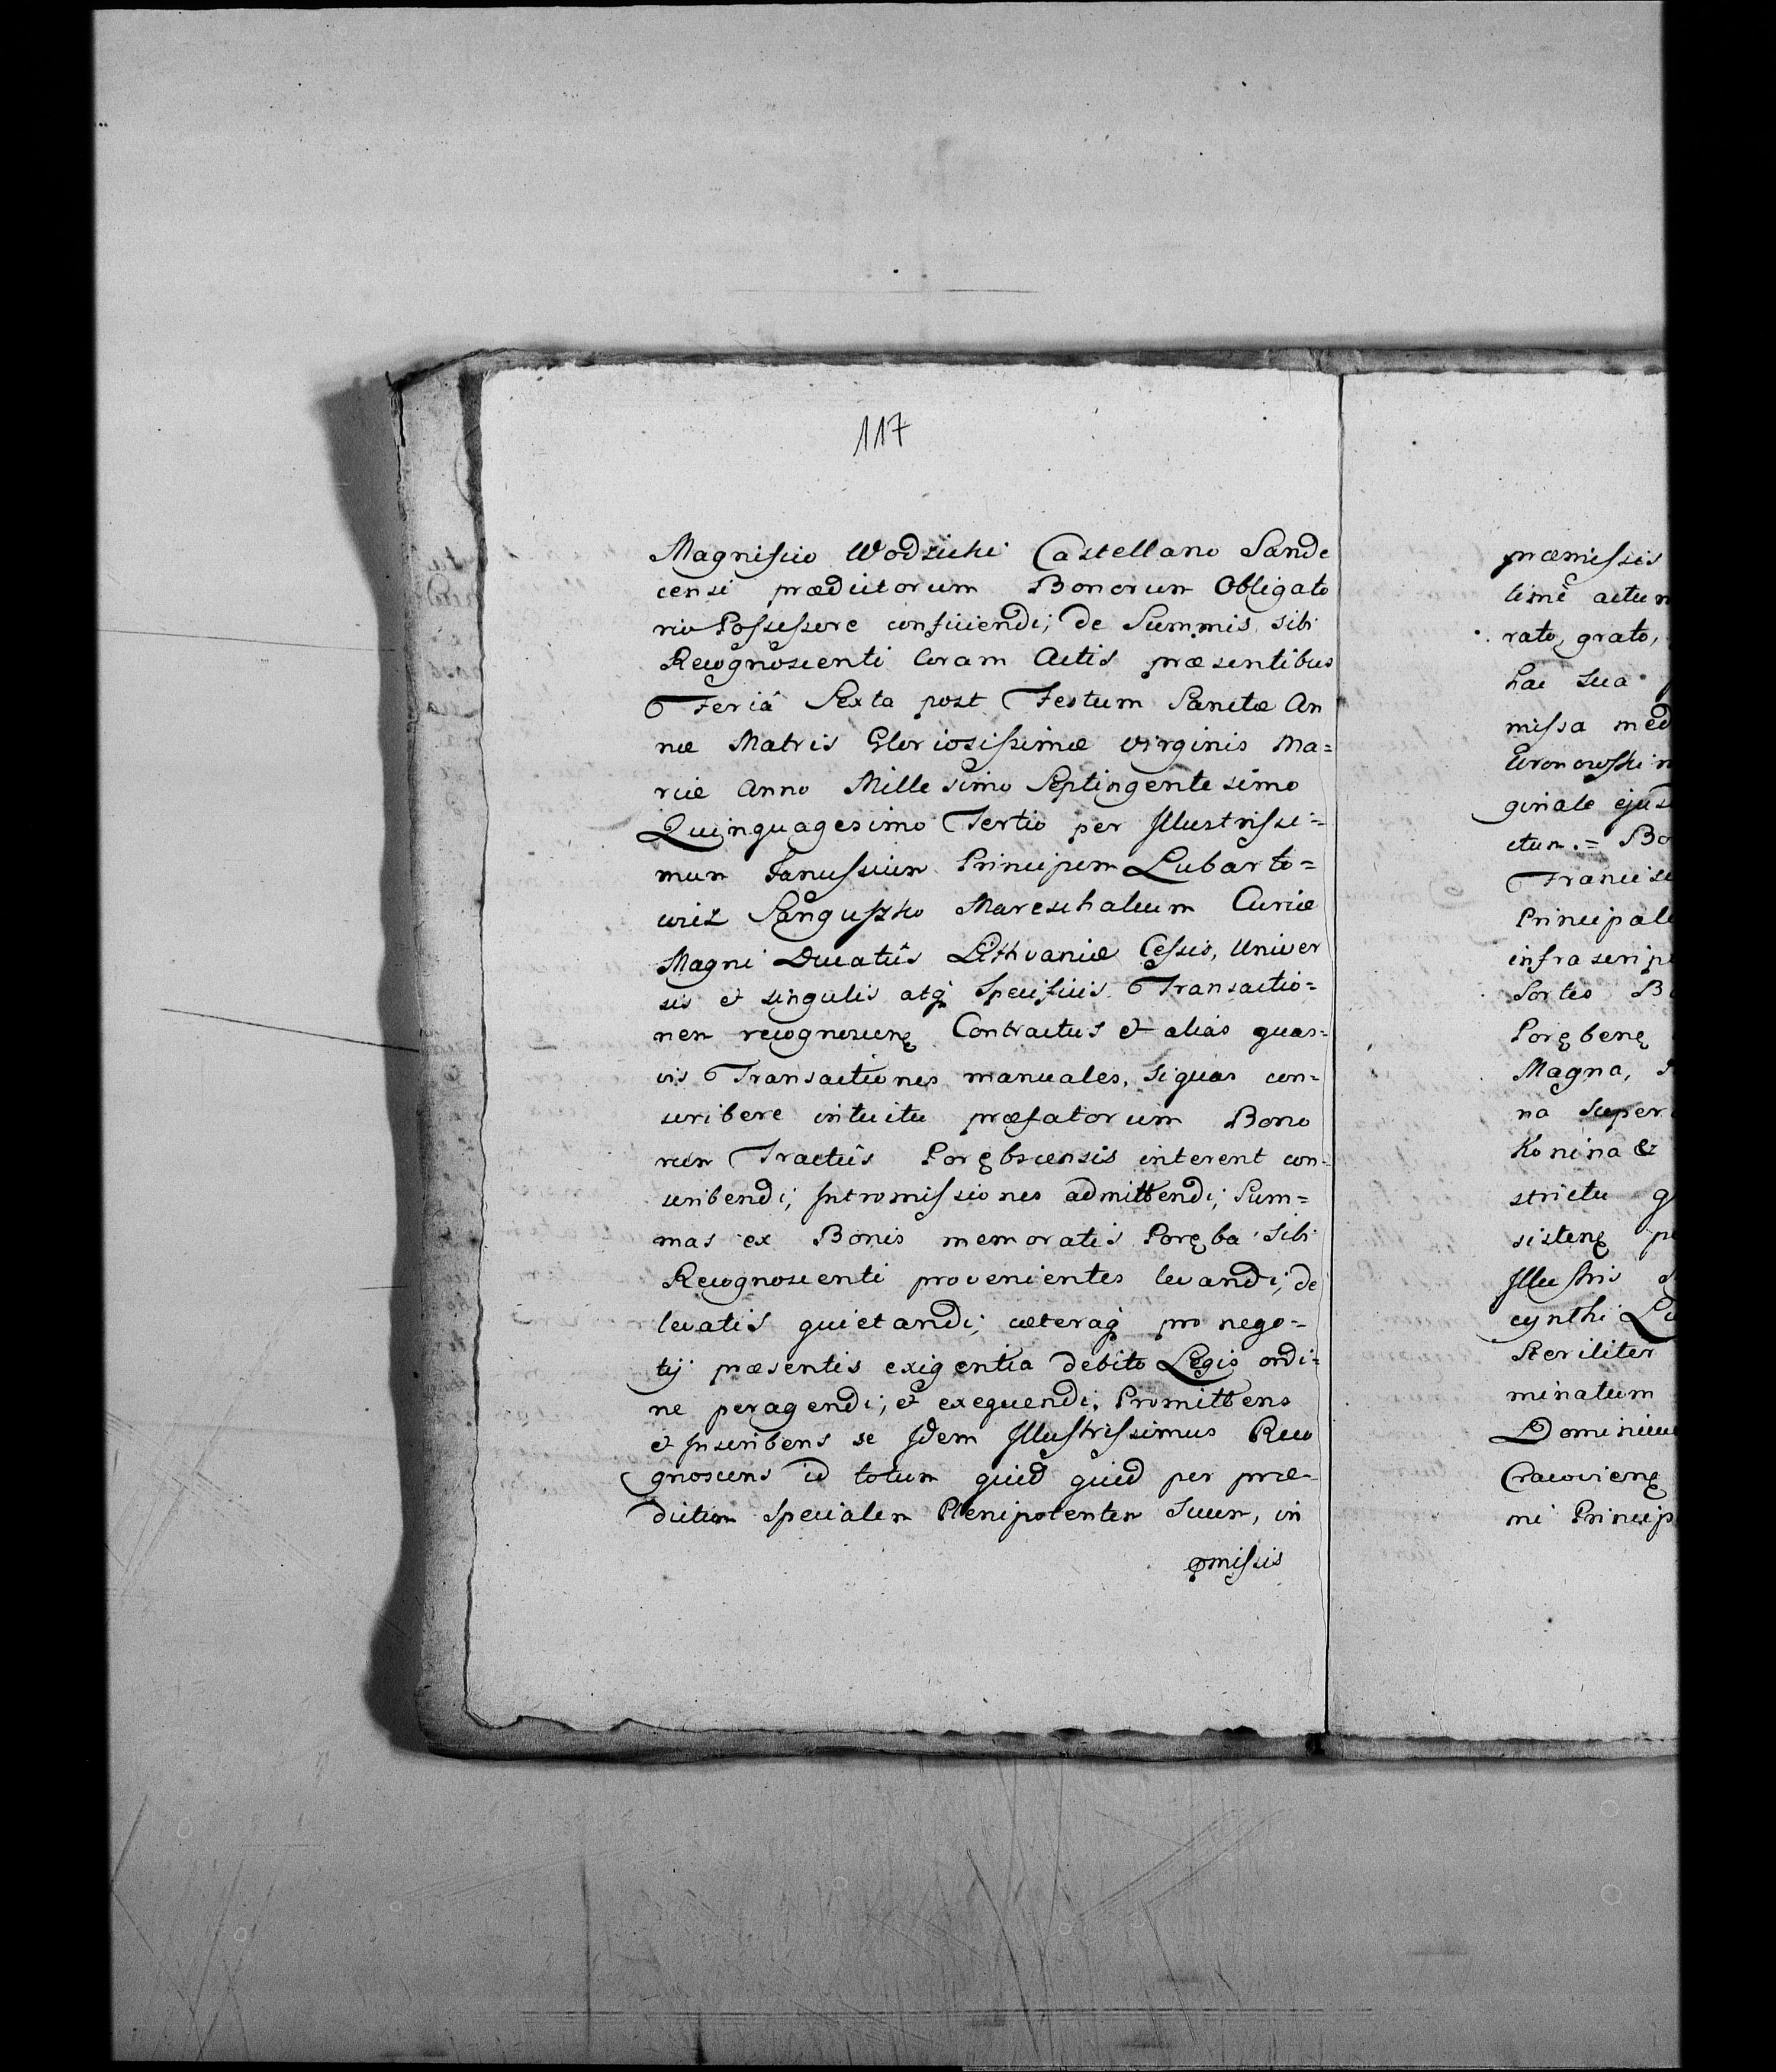 117
Magnifico Wodzicki Castellano Sande
censi prædictorum Bonorum Obligato
rio Possessore conficiendi; de Summis sibi
Recognoscenti Coram Actis præsentibus
Feriâ Sexta post Festum Sanctæ An
næ Matris Gloriosissimæ Virginis Ma=
riæ Anno Millesimo Septingentesimo
Quinquagesimo Tertio per Illustrissi=
mum Janussium Principem Lubarto=
wicz Sanguszko Mareschalcum Curiæ
Magni Ducatûs Lithvaniæ Cessis, Univer
sis et singulis atq specificis Transactio=
nem recognoscenę Contractus et alias quas=
vis Transactiones manuales, siquas con=
scribere intuitu præfatorum Bono
rum Tractûs Porębscensis interent con=
scribendi; Intromissiones admittendi; Sum=
mas ex Bonis memoratis Poręba sibi
Recognoscenti provenientes levandi; de
levatis quietandi; cæteraq pro nego=
tij præsentis exigentia debito Legis ordi=
ne peragendi; et exequendi; Promittens
et Inscribens se Idem Illustrissimus Reco
gnoscens id totum quid quid per præ=
dictum specialem Plenipotentem Suum, in
pmissis
præmissis
timè actum
rato, grato,
hac sua
missa med
Wronowski
ginale ejus
ctum.= Bo
Francis
Principale
infra scrip
Sortes B
Porębenę
Magna,
na Super
Konina &
strictu g
sistenę pe
Illustris
cynthi Lu
Steriliter
minatum
Dominium
Cracovienę
mi Princip